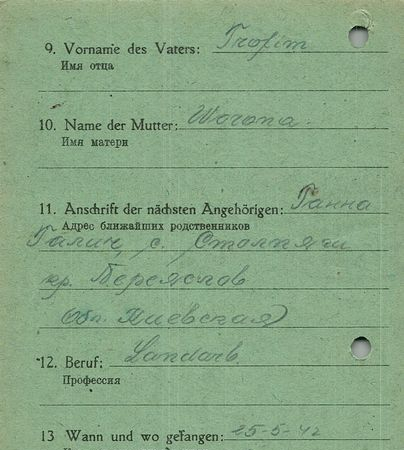 9. Vorname des Vaters: Trofim
Имя отца
10. Name der Mutter: Worona
Имя матери
11. Anschrift der nächsten Angehörigen: Ганна
Адрес ближайших родственников
Галич с. Столпяги
кр. Береяслов
обл. Киевская
12. Beruf: Landarb.
Профессия
13 Wann und wo gefangen: 25-5-42